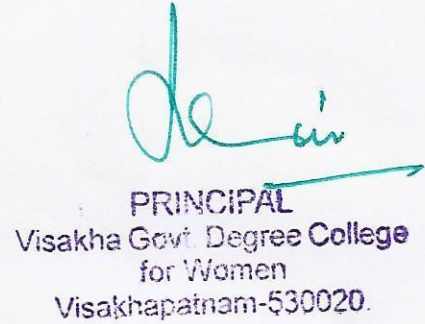 PRINCIPAL
Visakha Govt. Degree College
for Women
Visakhapatnam-530020.